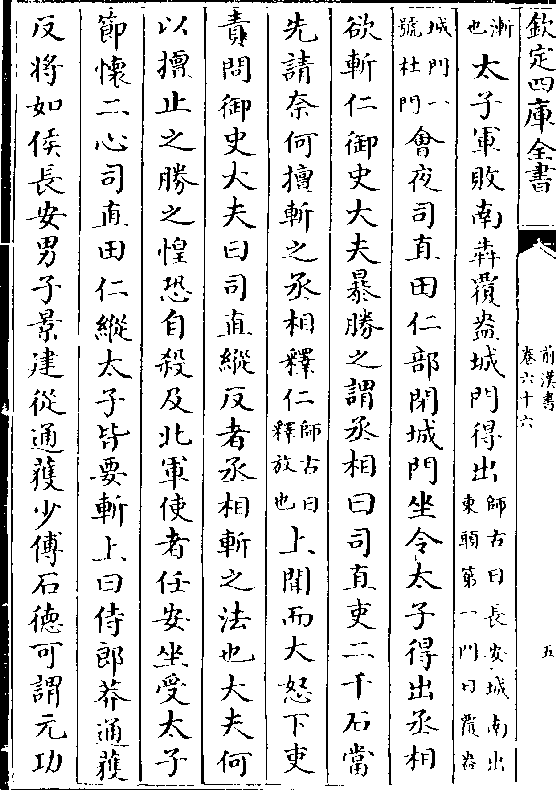 欽定四庫全書
前漢書
卷六十六
五
漸也太子軍敗南犇覆盎城門得出師古曰長安城南出東頭第一門曰覆盎
城門一號杜門會夜司直田仁部閉城門坐令太子得出丞相
欲斬仁御史大夫暴勝之謂丞相曰司直吏二千石當
先請奈何擅斬之丞相釋仁師古曰釋放也上聞而大怒下吏
責問御史大夫曰司直縱反者丞相斬之法也大夫何
以擅止之勝之惶恐自殺及北軍使者任安坐受太子
節懷二心司直田仁縱太子皆要斬上曰侍郎莽通獲
反將如侯長安男子景建從通獲少傅石德可謂元功